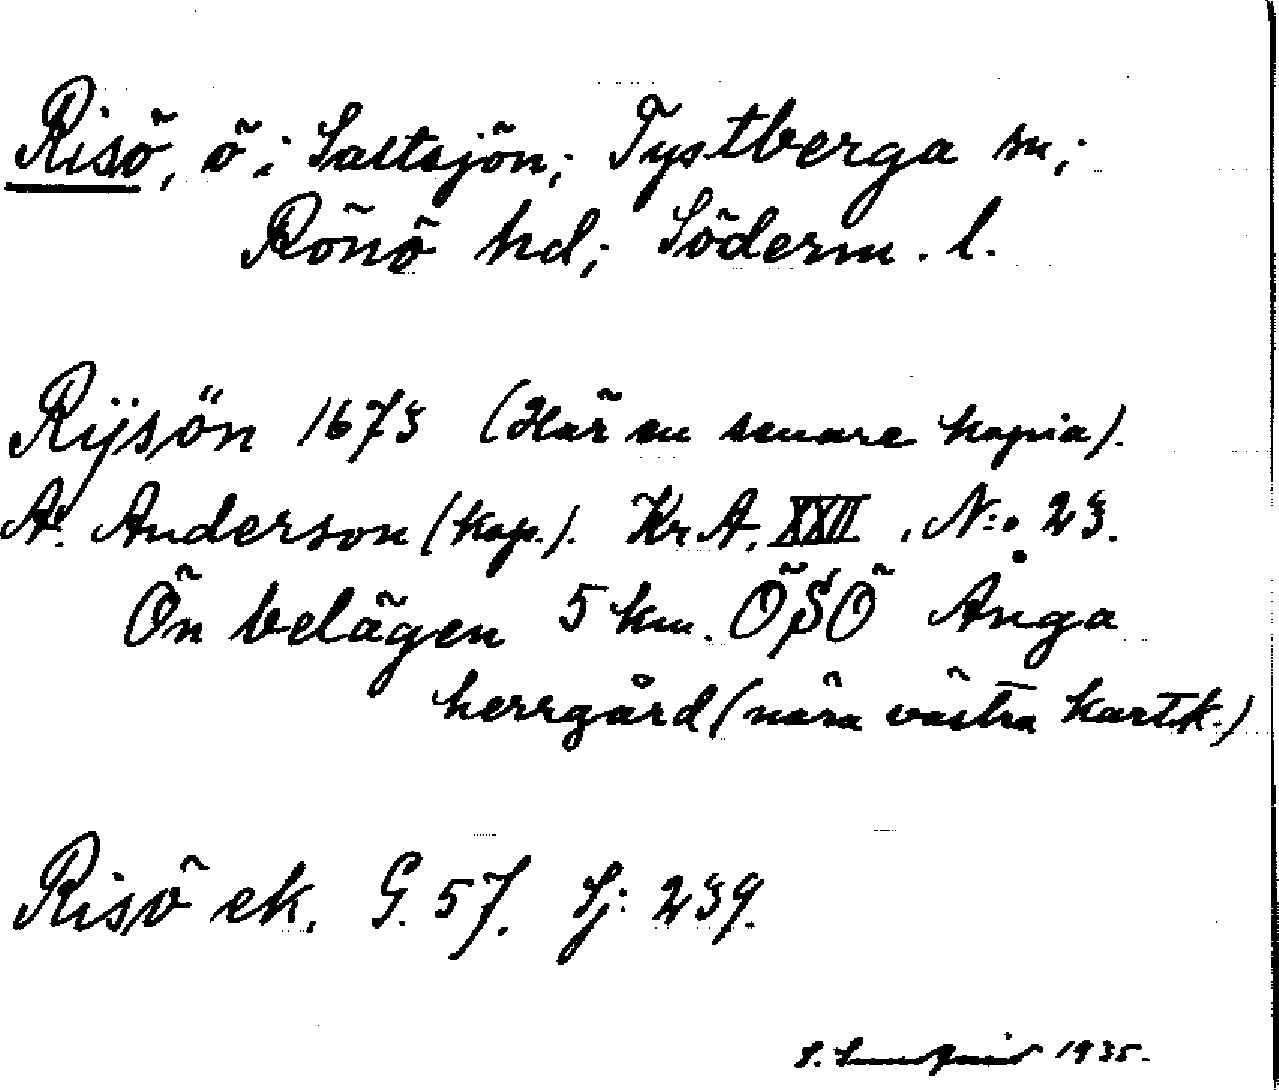 Risö, ö i Saltsjön; Tystberga sn;
Rönö hd; Söderm. l.
Rijsön 1673 (Här en senare kopia).
A. Anderson (kop.). Kr A. XXII, N:o 23.
Ön belägen 5 km. ÖSÖ Ånga
herrgård (nära västra kartk.)
Risö ek. G. 57. Sj: 239.
S. 1935.